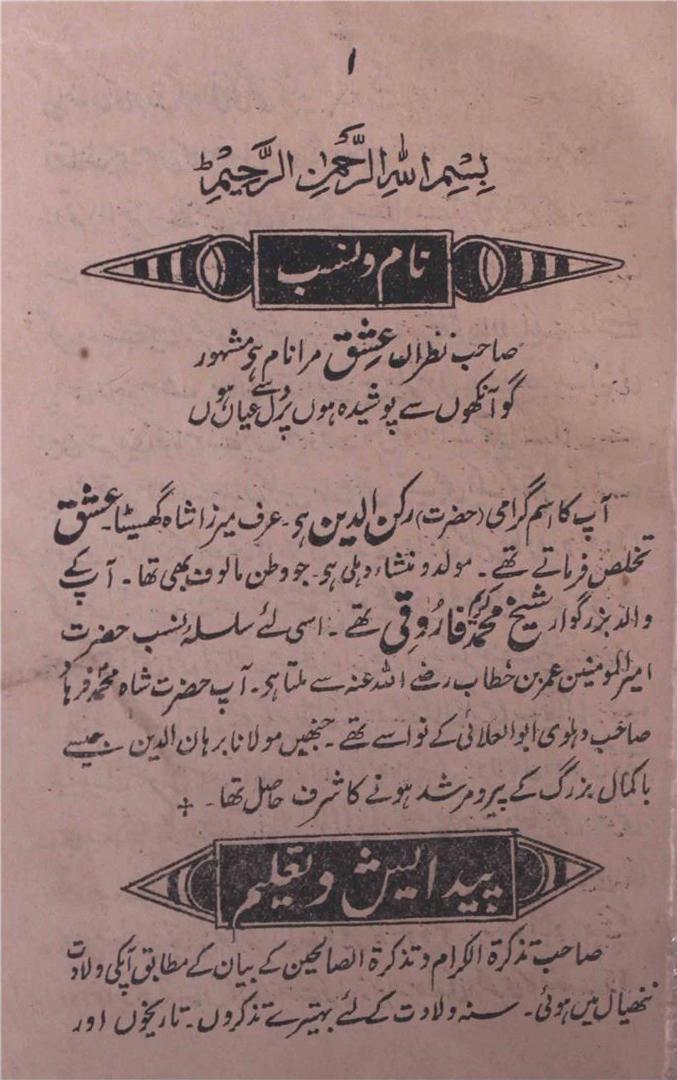 ۱
بِسْمِ اللهِ الرَّحْمٰنِ الرَّحِيْمِ ط
نام و نسب
صاحب نظراں عشق مرا نام ہی مشہور
گو آنکھوں سے پوشیدہ ہوں پر دل سے عیاں ہوں
آپ کا اسم گرامی (حضرت) رکن الدین ہی۔ عرف میرزا شاہ گھسیٹا۔ عشق
تخلص فرماتے تھے۔ مولد و منشاء دہلی ہی۔ جو وطن مالوف بھی تھا۔ آپ کے
والد بزرگوار شیخ محمد کریم فاروقی تھے۔ اسی لئے سلسلۂ نسب حضرت
امیر المومنین عمر بن خطاب رضے اللہ عنہ سے ملتا ہی۔ آپ حضرت شاہ محمد فرہاد
صاحب دہلوی ابوالعلائی کے نواسے تھے۔ جنھیں مولانا برہان الدین جیسے
باکمال بزرگ کے پیر و مرشد ہونے کا شرف حاصل تھا۔
پیدایش و تعلیم
صاحب تذکرۃ الکرام و تذکرۃ الصالحین کے بیان کے مطابق آپکی ولادت
ننھیال میں ہوئی۔ سنہ ولادت کے لئے بہتیرے تذکروں۔ تاریخوں اور